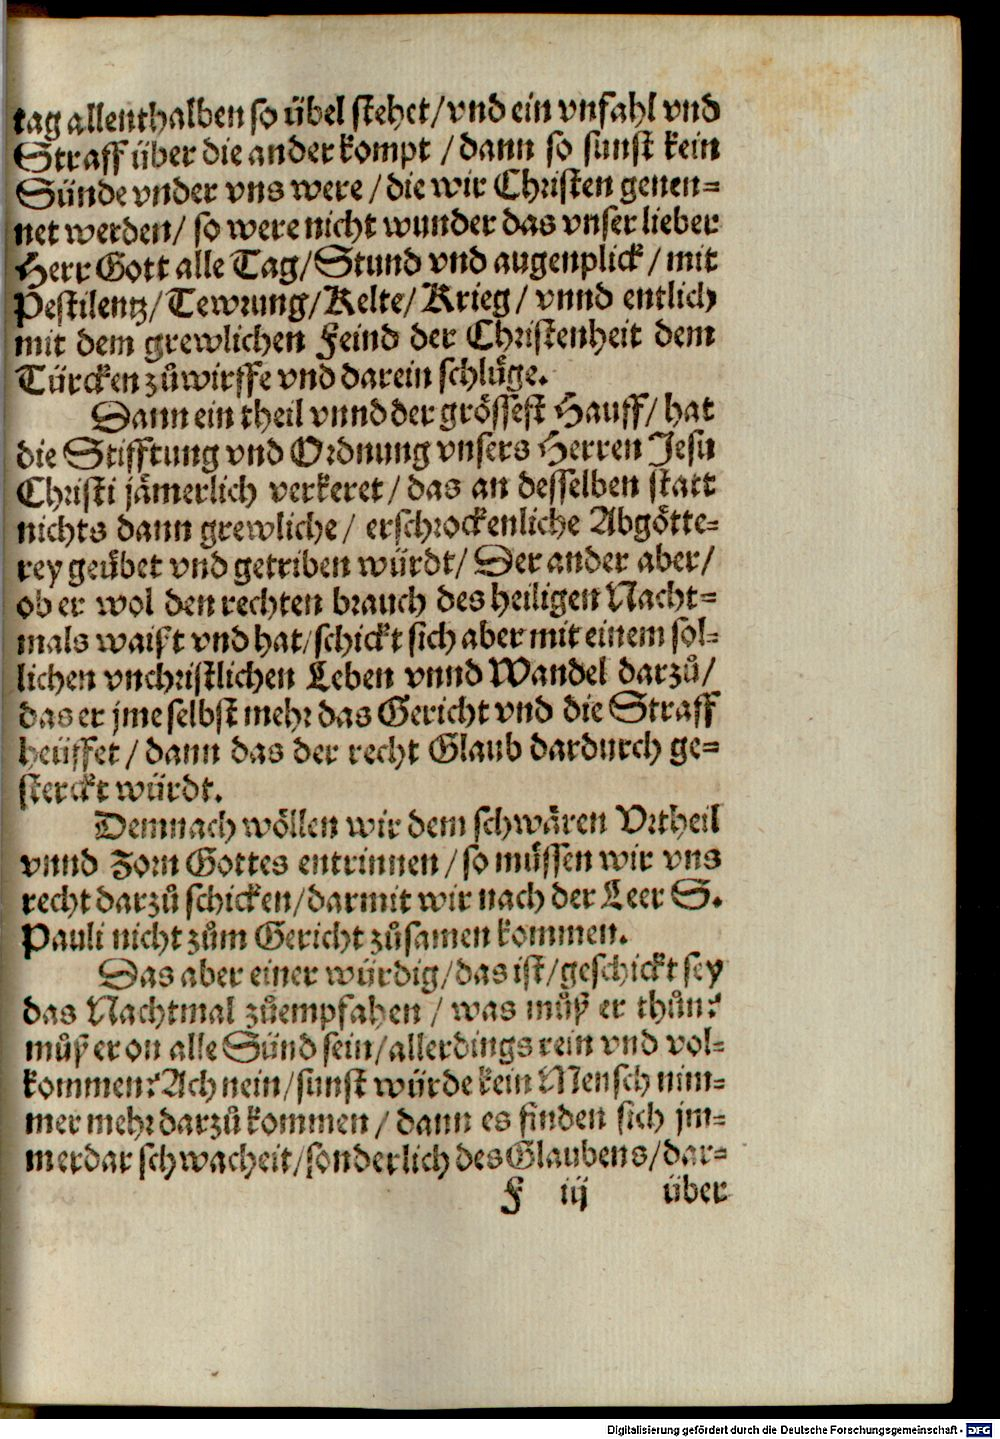 tag allenthalben so übel stehet/ vnd ein vnfahl vnd
Straff über die ander kompt / dann so sunst kein
Sünde vnder vns were / die wir Christen genen-
net werden/ so were nicht wunder das vnser lieber
Herr Gott alle Tag/ Stund vnd augenplick / mit
Pestilentz/ Tewrung/ Kelte/ Krieg / vnnd entlich
mit dem grewlichen Feind der Christenheit dem
Türcken zůwürffe vnd darein schlůge.
Dann ein theil vnnd der grössest Hauff/ hat
die Stifftung vnd Ordnung vnsers Herren Jesu
Christi jämerlich verkeret / das an desselben statt
nichts dann grewliche / erschrockenliche Abgötte-
rey geübet vnd getriben würdt/ Der ander aber/
ob er wol den rechten brauch des heiligen Nacht-
mals waißt vnd hat/ schickt sich aber mit einem sol-
lichen vnchristlichen Leben vnnd Wandel darzů/
das er jme selbst mehr das Gericht vnd die Straff
heüffet / dann das der recht Glaub dardurch ge-
sterckt würdt.
Demnach wöllen wir dem schwären Vrtheil
vnnd Zorn Gottes entrinnen / so müssen wir vns
recht darzů schicken/ darmit wir nach der Leer S.
Pauli nicht zům Gericht zůsamen kommen.
Das aber einer würdig/ das ist/ geschickt sey
das Nachtmal zůempfahen / was můß er thůn?
můß er on alle Sünd sein/ allerdings rein vnd vol-
kommen? Ach nein/ sunst würde kein Mensch nim-
mer mehr darzů kommen / dann es finden sich jm-
merdar schwacheit/ sonderlich des Glaubens/ dar-
F iij über
Digitalisierung gefördert durch die Deutsche Forschungsgemeinschaft - DFG